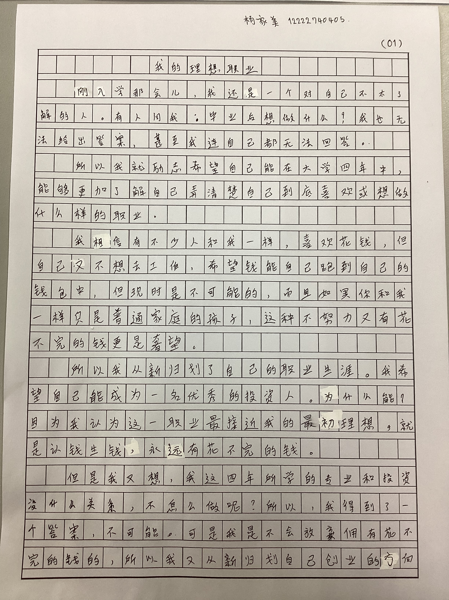 杨家美 12222740405
(01)
我的理想职业
刚入学那会儿，我还是一个对自己不太了
解的人。有人问我：毕业后想做什么？我也无
法给出答案，甚至我连自己都无法回答。
所以我就励志希望自己能在大学四年中，
能够更加了解自己弄清楚自己到底喜欢或想做
什么样的职业。
我相信有不少人和我一样，喜欢花钱，但
自己又不想去工作，希望钱能自己跑到自己的
钱包中，但现时是不可能的，而且如果你和我
一样只是普通家庭的孩子，这种不努力又有花
不完的钱更是奢望。
所以我从新归划了自己的职业生涯。我希
望自己能成为一名优秀的投资人。为什么呢？
因为我认为这一职业最接近我的最初理想，就
是认钱生钱，永远有花不完的钱。
但是我又想，我这四年所学的专业和投资
没什么关系，不怎么做呢？所以，我得到了一
个答案，不可能。可是我是不会放弃拥有花不
完的钱的，所以我又从新归划自己创业的方向